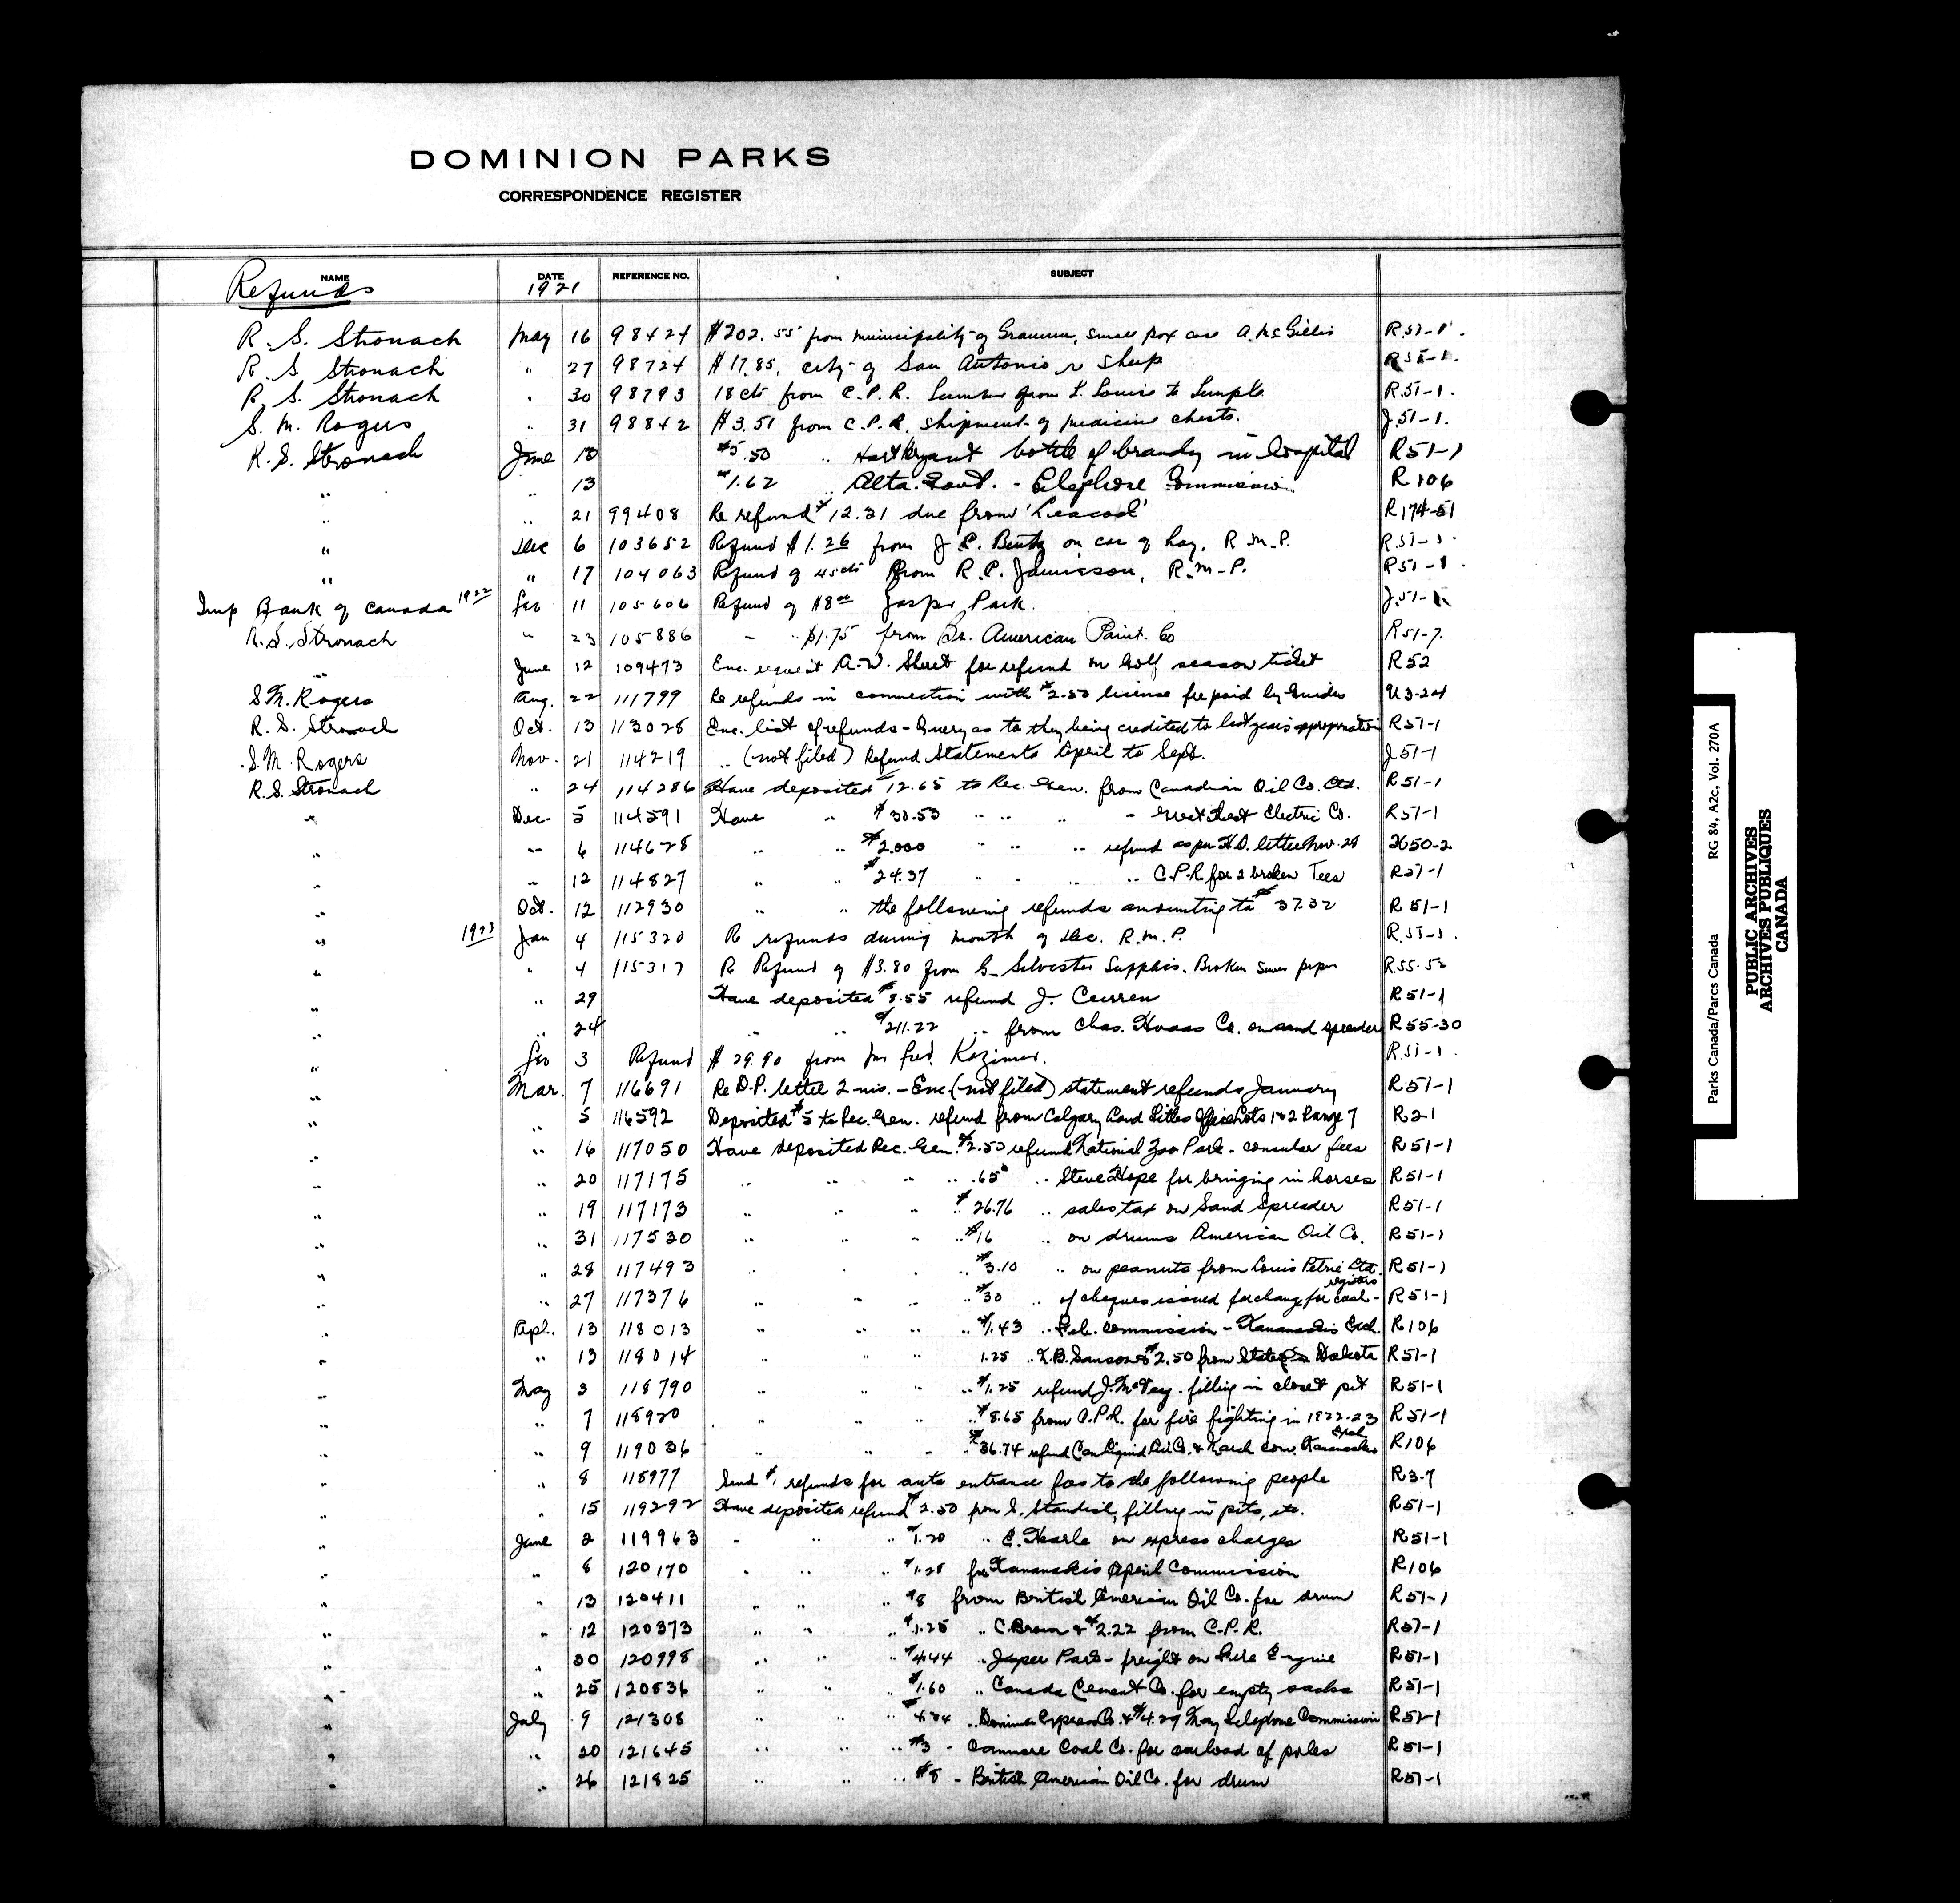 DOMINION PARKS
CORRESPONDENCE REGISTER
NAME DATE REFERENCE NO. SUBJECT
Refunds 1921
R. S. Stronach May 16 98424 $202.55 from municipality of small pox case A. McGillis R.51-1.
R. S. Stronach " 27 98724 $17.85, city of San Antonio re sheep
R. S. Stronach " 30 98793 18 cts from C.P.R. Lumber from L. Louise to Temple R.51-1.
S. M. Rogers " 31 98842 $3.51 from C.P.R. shipment of medicine chests. J.51-1.
R. S. Stronach June $5.50 " bottle of brandy in hospital R51-1
" " 13 $1.62 " Alta. Govt. - Telephone Commission R106
" " 21 99408 Re refund $12.31 due from 'Leacod' R174-51
" Dec 6 103652 Refund $1.26 from J. on car of hay, R.M.P. R51-1.
" " 17 104063 Refund of 45cts from R.P. Jamieson, R.M.P. R51-1.
Imp Bank of Canada 1922 Feb 11 105606 Refund of $8.00 Jasper Park. J.51-1
R.S. Stronach " 23 105886 " " $1.75 from Br. American Paint. Co R51-7.
" June 12 109473 Enc. request A.W. for refund on Golf season ticket R52
S.M. Rogers Aug. 22 111799 Re refunds in connection with $2.50 license fee paid by Guides U3-24
R. S. Stronach Oct. 13 113028 Enc. list of refunds - Query as to they being credited to last years appropriation R51-1
S.M. Rogers Nov. 21 114219 " (not filed) Refund Statements April to Sept. J51-1
R.S. Stronach " 24 114286 Have deposited $12.65 to Rec. Gen. from Canadian Oil Co. Ltd. R51-1
" Dec. 5 114591 Have " $30.53 " " " - Great West Electric Co. R51-1
" " 6 114628 " " $2.000 " " " refund as per letter Nov. 28
" " 12 114827 " " $24.37 " " " " C.P.R for 2 broken Tees
" Oct. 12 112930 " " the following refunds amounting to $37.32 R51-1
" 1923 Jan 4 115320 Re refunds during month of Dec. R.M.P.
" " 4 115317 Re Refund of $3.80 from G. Silvester Supplies. Broken sewer pipe R.55-52
" " 29 Have deposited $8.55 refund J. Curren R51-1
" " 24 " " $211.22 " from Chas. Co. on sand spreader R55-30
" Feb 3 Refund $29.90 from Mr Fred. Kozimer. R.51-1.
" Mar. 7 116691 Re D.P. letter 2 - Enc. (not filed) statement refunds January R51-1
" " 5 116592 Deposited $5 to Rec. Gen. refund from Calgary Land Titles Office Lots 1&2 Range 7 R2-1
" " 16 117050 Have deposited Rec. Gen. $2.50 refund National Zoo Park - consular fees R51-1
" " 20 117175 " " " " .65 " Steve Hope for bringing in horses R51-1
" " 19 117173 " " " " $26.76 " sales tax on Sand Spreader R51-1
" " 31 117530 " " " " $16 " on drums American Oil Co. R51-1
" " 28 117493 " " " " $3.10 " on peanuts from Louis Petrie Ltd. R51-1
" " 27 117376 " " " " $30 " of cheques issued for change for cash registers - R51-1
" Apl. 13 118013 " " " " $1.43 " Tele. commission - Kananaskis Exch. R106
" " 13 118014 " " " 1.25 " N.B. Sanson & $2.50 from State Dakota R51-1
" May 3 118790 " " " " $1.25 refund J. McVey - filling in closet pit R51-1
" " 7 118920 " " " " $8.65 from C.P.R. for fire fighting in 1922-23 R51-1
" " 9 119036 " " " " $36.74 refund Can Liquid Air Co. & March com. Kananaskis Exch R106
" " 8 118977 Send $1 refunds for auto entrance fees to the following people R3-7
" " 15 119292 Have deposited refund $2.50 from S. Standish, filling in pits, etc. R51-1
" June 2 119963 " " " $1.20 " E. Hearle on express charges R51-1
" " 8 120170 " " " $1.28 for Kananaskis April Commission R106
" " 13 120411 " " " $8 from British American Oil Co. for drum R51-1
" " 12 120373 " " " $1.25 " C. Brown & $2.22 from C.P.R. R51-1
" " 30 120998 " " " $4.44 " Jasper Park - freight on Fire Engine R51-1
" " 25 120836 " " " $1.60 " Canada Cement Co. for empty sacks R51-1
" July 9 121308 " " " " Dominion Express Co. & $4.29 May Telephone Commission R51-1
" " 20 121645 " " " $3 - Canmore Coal Co. for carload of poles R51-1
" " 26 121825 " " " $8 - British American Oil Co. for drum R51-1
Parks Canada/Parcs Canada RG 84, A2c, Vol. 270A
PUBLIC ARCHIVES
ARCHIVES PUBLIQUES
CANADA